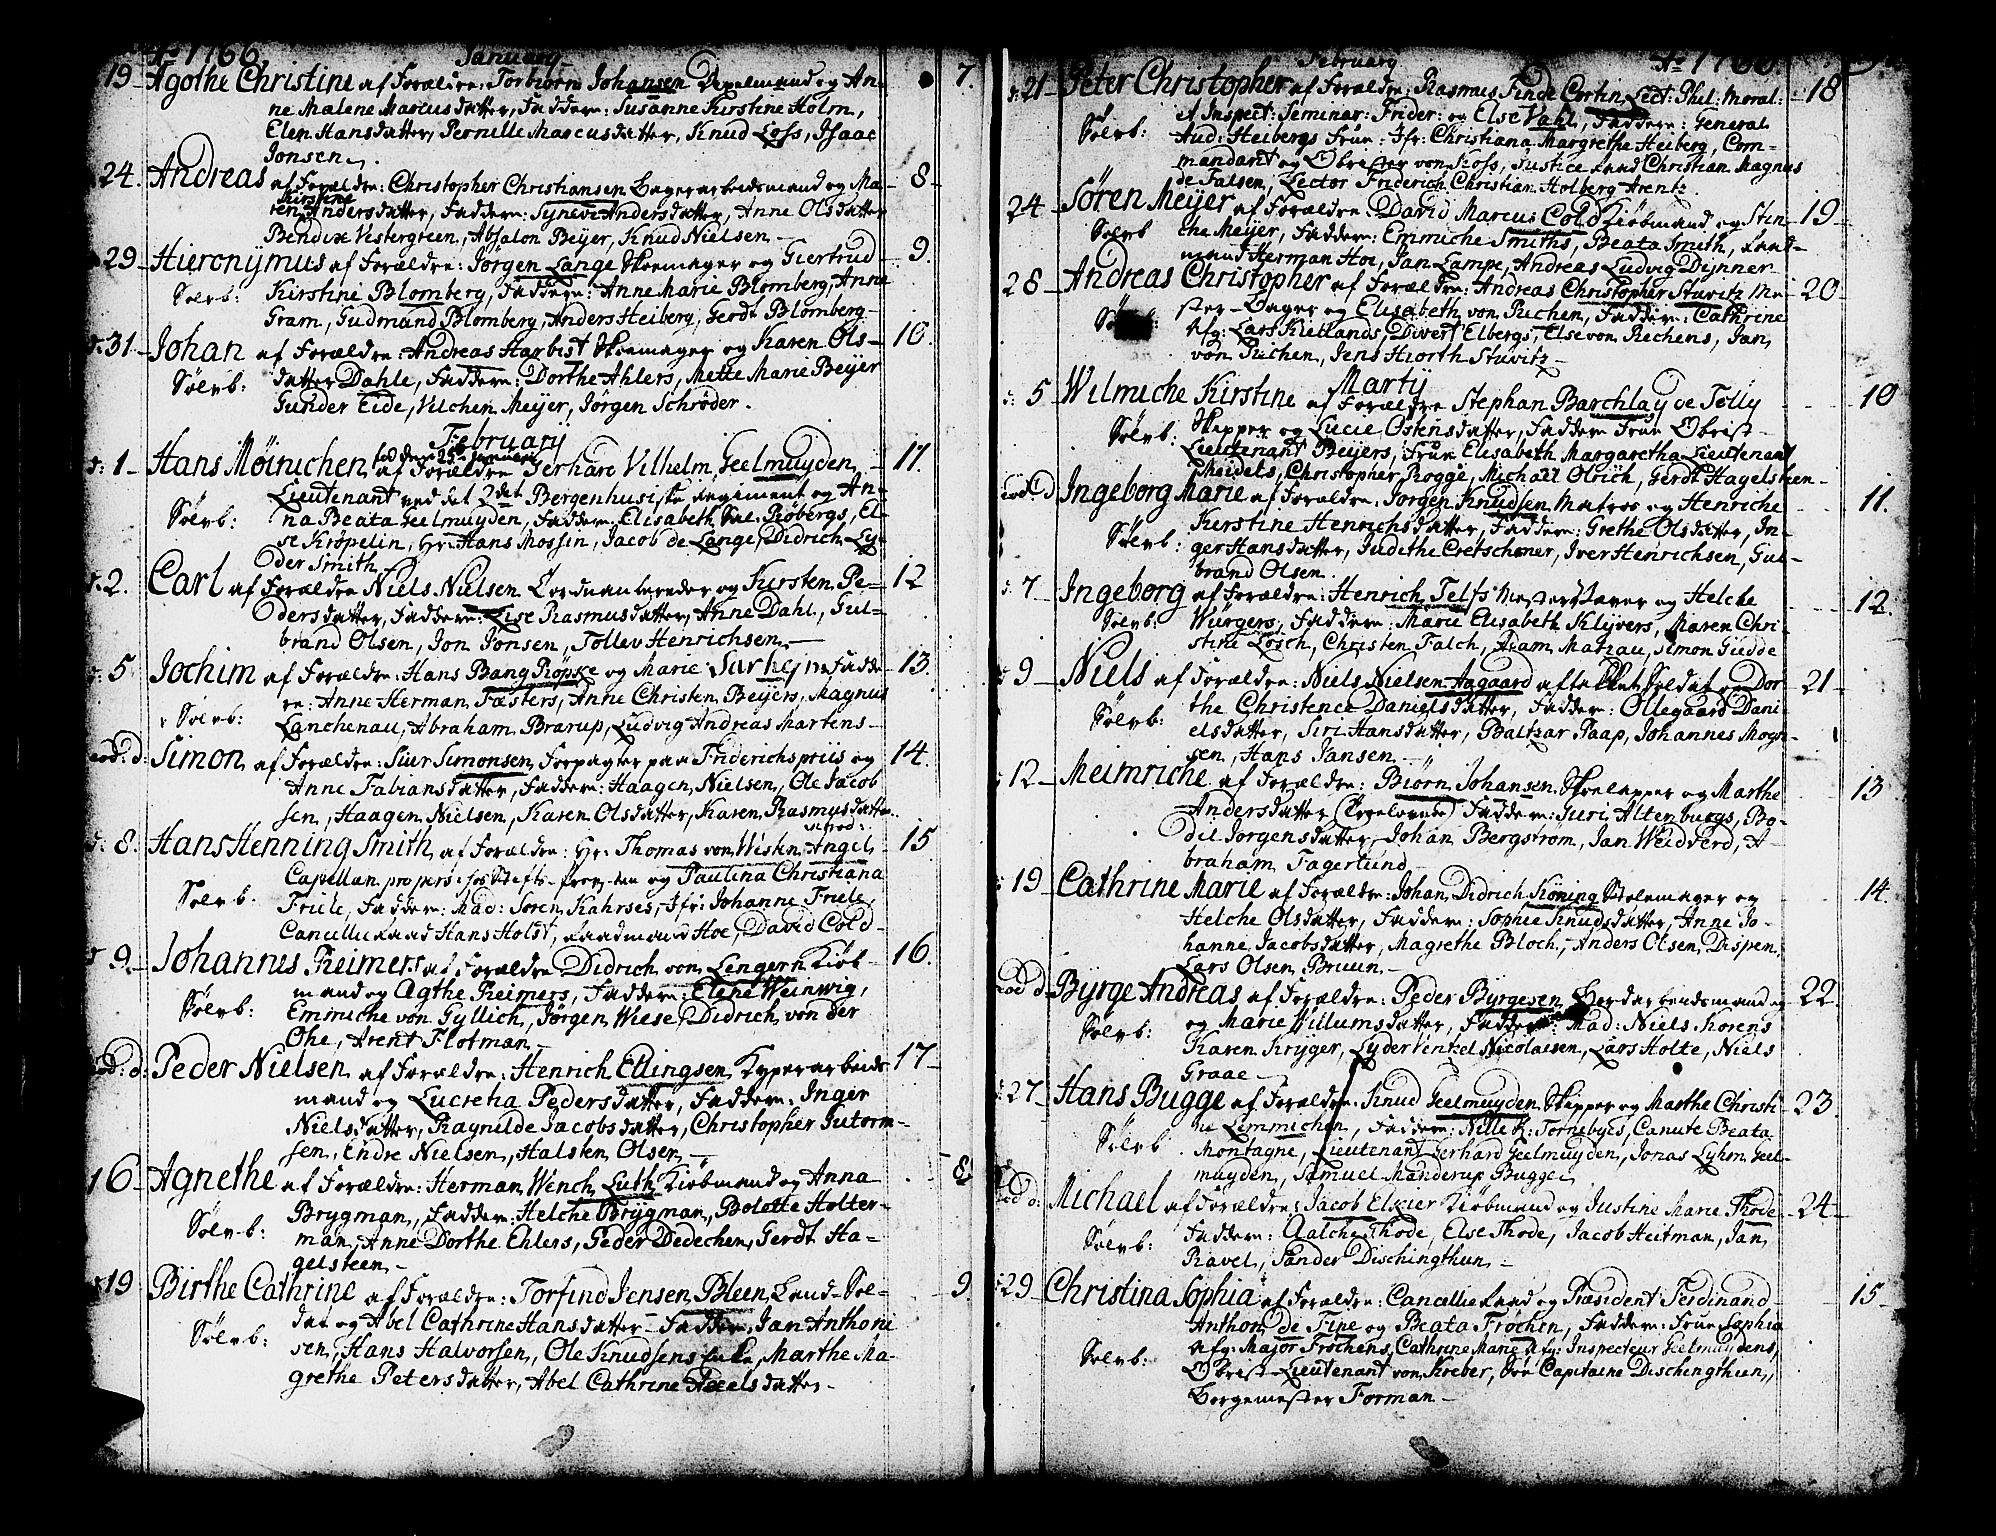 Ao 1766. January
19 Agothe Christine af Forældre: Torbiörn Johansen Degelmand og An- 7.
ne Malene Marcusdatter, Faddere: Susanne Kirstine Holm,
Elen Hansdatter, Pernille Marcusdatter, Knud Loss, Isaac
Jonsen.
24. Andreas af Forældre: Christopher Christiansen Bagerarbeidsmand og Ma- 8
ren Kirstine Andersdatter, Faddere: Synevi Andersdatter, Anne Olsdatter
Bendix Vestergreen, Absalon Beÿer, Knud Nielsen
29 Hieronÿmus af Forældre: Jørgen Lange Skoemager og Giertrud 9.
Sölvb: Kirstine Blomberg, Faddere: Anne Marie Blomberg, Anne
Gram, Gudmund Blomberg, Anders Heiberg, Gerdt Blomberg
31 Johan af Forældre: Andreas Harbist Skoemager og Karen Ols- 10.
Sölvb: datter Dahle, Faddere: Dorthe Ahlers, Mette Marie Beÿer
Gunder Eide, Vilchen Meÿer, Jørgen Schrøder.
Februarÿ
1 Hans Möinichen fød den 25de Januari af Forældre Gerhard Vilhelm Geelmuyden 11.
Lieutenant ved det 2det Bergenhusiske Regiment og An-
Sölvb: na Beata Geelmuyden, Faddere: Elisabeth Sal. Röbergs, El-
se Kröpelin, Hr: Hans Mossin, Jacob de Lange, Didrich Ly-
der Smith
2. Carl af Forældre Niels Nielsen og Kirsten Pe- 12
dersdatter, Faddere: Lise Rasmusdatter, Anne Dahl, Gul-
brand Olsen, Jon Jonsen, Tollev Henrichsen
5 Jochim af Forældre: Hans Bang Röpke og Marie Fadde 13.
re: Anne Herman Fæsters, Anne Christen Beÿers, Magnus
Sölvb: Lanchenau, Abraham Brarup, Ludvig Andreas Martens
eod: d: Simon af Forældre: Siur Simonsen Forpagter paa Friderichspriis og 14.
Anne Fabiansdatter, Faddere: Haagen Nielsen, Ole Jacob
sen, Haagen Nielsen, Karen Olsdatter, Karen Rasmusdatter
8. Hans Henning Smith af Forældre: Hr. Thomas von Westen Angel 15
Capellan pro pers: og Paulina Christiana
Sölvb. Friele, Faddere: Mad: Søren Kahrses, Jfr: Johanne Friele,
Cancellieraad Hans Holst, Raadmand Hoe, David Cold
9. Johannes Reimers af Forældre Didrich von Lengern Kiöb- 16.
mand og Agthe Reimers, Faddere: Elene Weinwig,
Sölvb: Emmiche von Gyllich, Jørgen Wiese, Didrich von der
Ohe, Arent Flotman
eod: d: Peder Nielsen af Forældre: Henrich Ellingsen Kyperarbeids 17
mand og Lucretia Pedersdatter, Faddere: Inger
Nielsdatter, Ragnilde Jacobsdatter, Christopher Gutorm-
sen, Endre Nielsen, Halsten Olsen
16 Agnethe af Forældre: Herman Wench Luth Kiöbmand og Anna 8
Brygman, Faddere: Helche Brygman, Bolette Holter-
Sölvb: man, Anne Dorthe Ehlers, Peder Dedechen, Gerdt Ha-
gelsteen
19 Birthe Cathrine af Forældre: Torfind Jensen Bleen Land-Sol- 9
dat og Abel Cathrine Hansdatter Faddere Jan Anthoni
Sölvb: sen, Hans Halvorsen, Ole Knudsens Enke, Marthe Ma-
grethe Petersdatter, Abel Cathrine Neelsdatter
February Ao 1766
21 Peter Christopher af Forældre: Rasmus Finde Cortin Lect: Phil: Moral: 18
et Inspect: Seminar: Frider: og Else Vahl, Faddere: General
Sölvb: Aud: Heibergs Frue: Jfr: Christiana Margrethe Heiberg, Com-
mandant og Obrister von Hoss, Justice Raad Christian Magnus
de Falsen, Lector Friderich Christian Holberg Arentz
24 Sören Meÿer af Forældre: David Marcus Cold Kiöbmand og Stin- 19
Sölvb che Meÿer, Faddere: Emmiche Smiths, Beata Smith, Raad-
mand Herman Hoe, Jan Lampe, Andreas Ludvig Dÿnner
28 Andreas Christopher af Forældre: Andreas Christopher Stuvitz Me- 20
ster-Bager og Elisabeth von Ruchen, Faddere: Cathrine
Sölvb: Afg: Lars Kiellands, Divert Elbergs, Else von Rechens, Jan
von Ruchen, Jens Hiorth Stuvitz
Martÿ
5 Wilmiche Kirstine af Forældre Stephan Barchlay de Tolly 10
Sölvb: Skipper og Lucie Ostensdatter, Faddere Frue Obrist-
Lieutenant Beÿers, Frue Elisabeth Margaretha Lieutenant
Meidels, Christopher Rogge, Michael Olrich, Gerdt Hagelsteen
eod: d Ingeborg Marie af Forældre: Jørgen Knudsen Matros og Henriche 11.
Kerstine Henrichsdatter, Faddere: Grethe Olsdatter, In-
Sölvb: ger Hansdatter, Judithe Cretschmer, Iver Henrichsen, Gul-
brand Olsen.
7 Ingeborg af Forældre: Henrich Telfs og Helche 12.
Sölvb: Würgers, Faddere: Marie Elisabeth Klÿvers, Maren Chri-
stine Lösch, Christen Falch, Adam Matzau, Simon Giedde
9 Niels af Forældre: Niels Nielsen Aagaard aftakket Soldat og Dor 21
Sölvb: the Christence Danielsdatter, Faddere: Ollegaard Dani-
elsdatter, Siri Hansdatter, Baltzar Paap, Johannes Mogn-
sen, Hans Jansen
12 Meimriche af Forældre: Biørn Johansen Skoelapper og Marthe 13
Andersdatter (Troelovede) Faddere: Guri Altenburgs, Bo-
dil Jørgensdatter, Johan Bergstrøm, Jan Weidverd, A-
braham Fagerlund
19 Cathrine Marie af Forældre: Johan Didrich Køning Stolemager og 14.
Helche Olsdatter, Faddere: Sophie Knudsdatter, Anne Jo-
hanne Jacobsdatter, Magrethe Bloch, Anders Olsen Dispen,
Lars Olsen Bruun
eod d Byrge Andreas af Forældre: Peder Byrgesen og 22.
Sölvb: og Marie Willumsdatter, Faddere: Mad: Niels Korens
Karen Kryger, Lyder Venkel Nicolaisen, Lars Holte, Niels
Graae
27 Hans Bugge af Forældre: Knud Geelmuyden Skipper og Marthe Christi 23.
Sölvb ne Lemmichen, Faddere: Nille R: Tornebyes, Canute Beata
Montagne, Lieutenant Gerhard Geelmuyden, Jonas Lyhm Geel-
muyden, Samuel Manderup Bugge
eod d: Michael af Forældre: Jacob Elzier Kiöbmand og Justine Marie Thode 24
Sölvb: Faddere: Aalche Thode, Else Thode, Jacob Heitman, Jan
Ravel, Sander Dischingthun
29 Christina Sophia af Forældre: Cancellie Raad og Præsident Ferdinand 15
Anthon de Fine og Beata Frøchen, Faddere: Frue Sophia
Sölvb: Afg: Major Frøchens, Cathrine Marie Afg: Inspecteur Geelmuydens,
Obrist-Lieutenant von Kreber, Capitaine Dischingthun,
Borgemester Forman